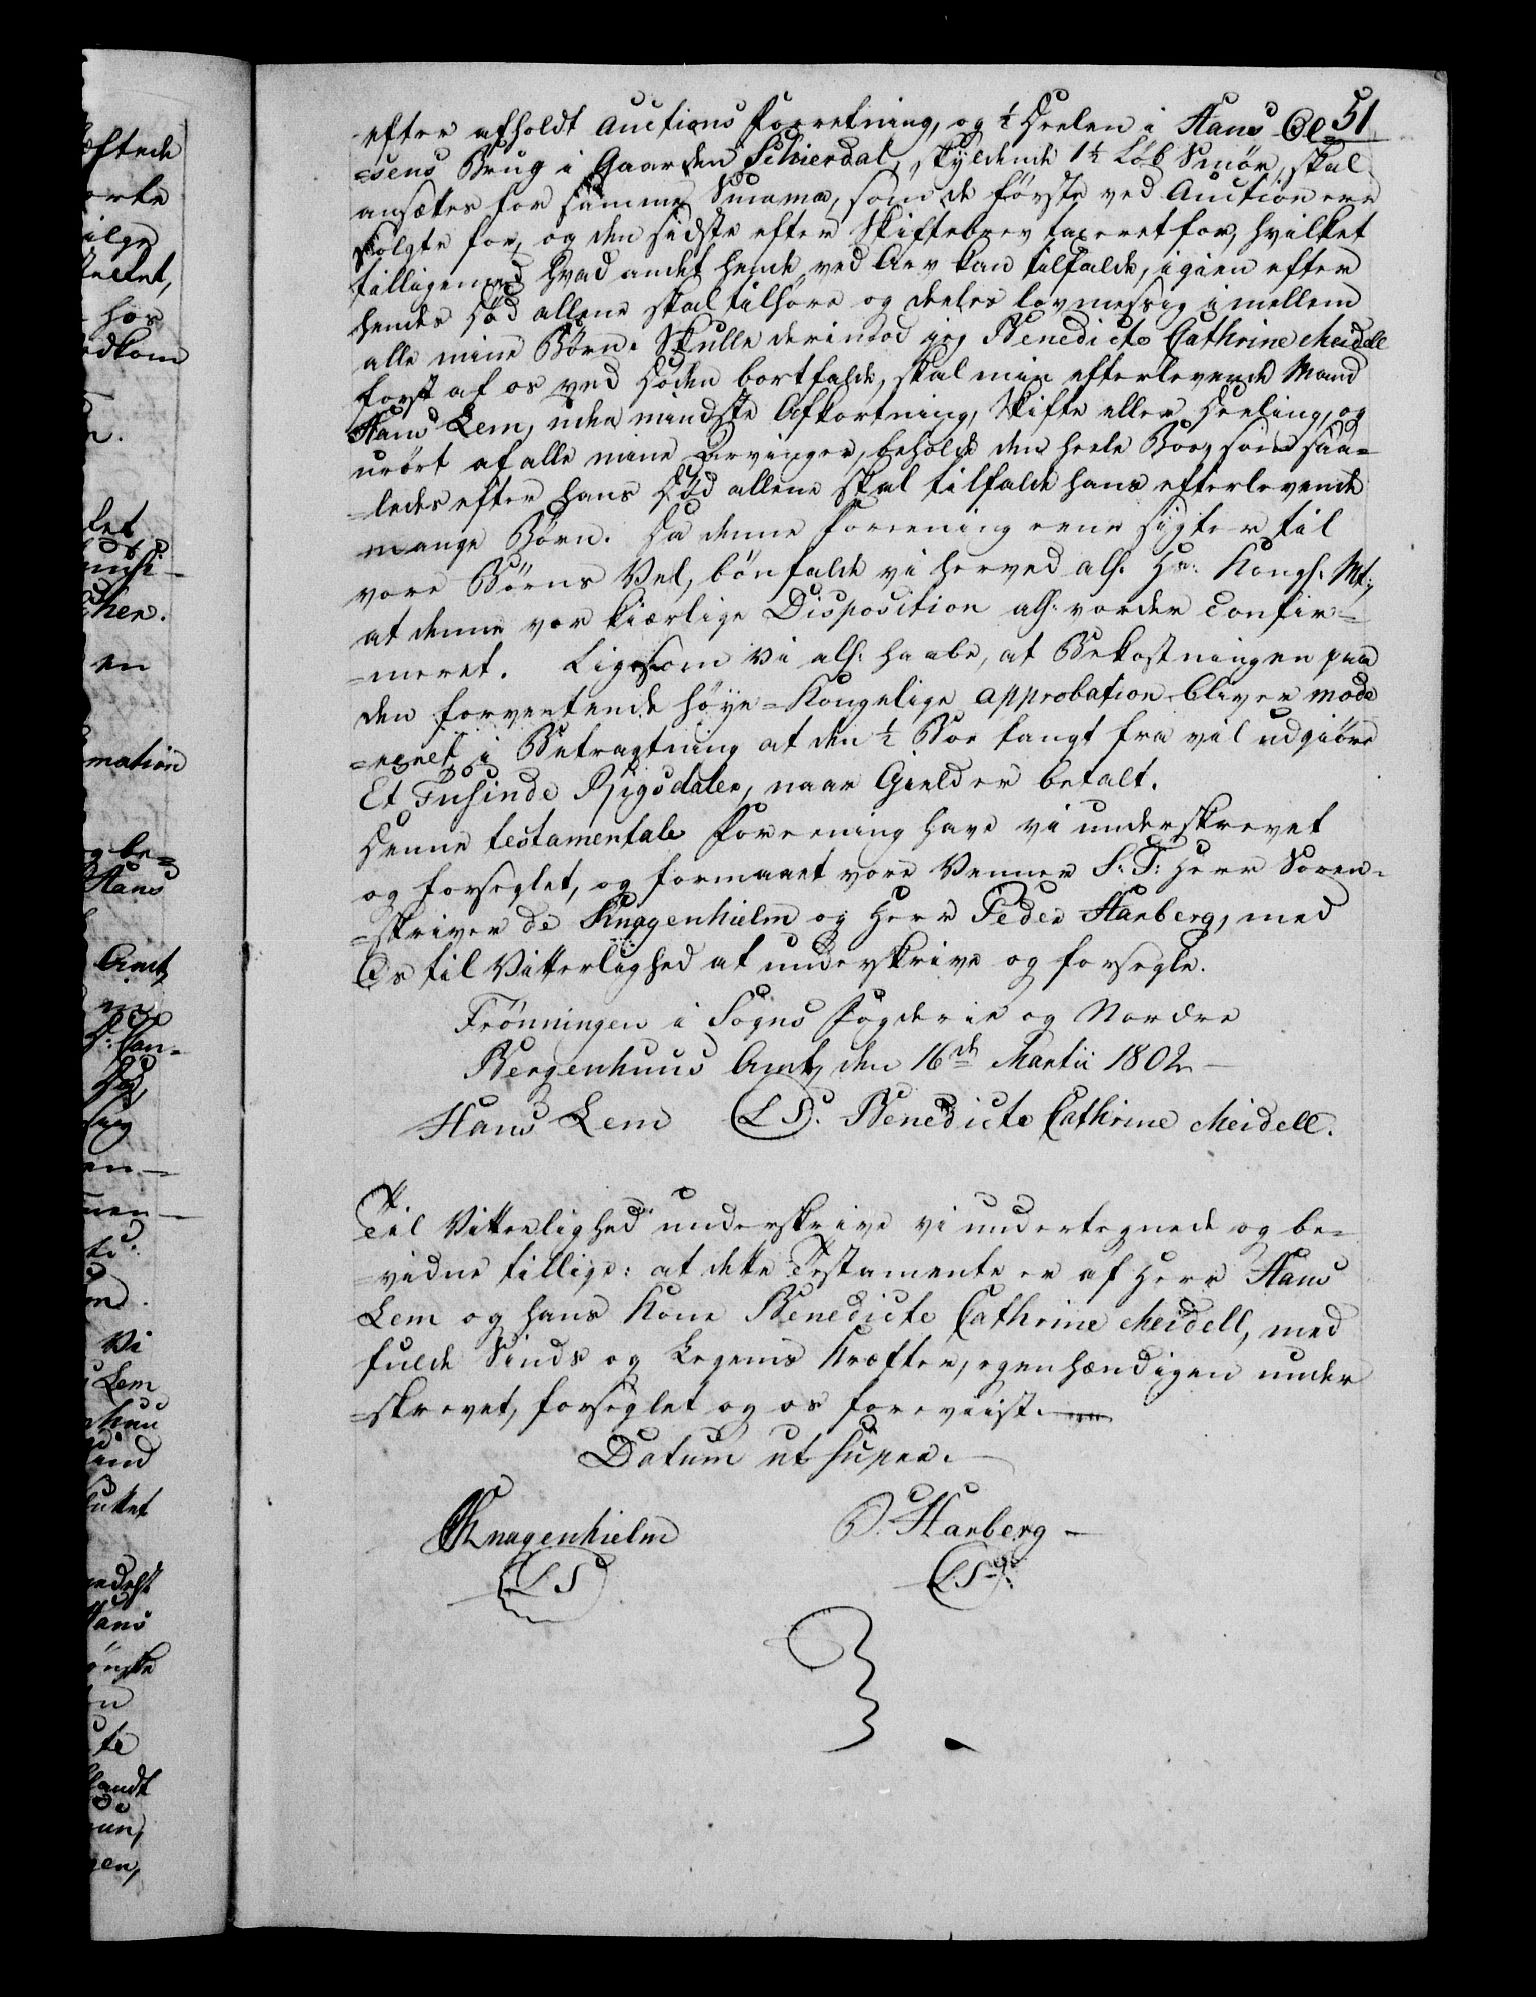 51
efter afholdt Auctions Forretning, og ½ Deelen i Hans Ol=
=sens Brug i Gaarden Schierdal, skyldende 1½ Løb Smør, skal
ansættes for samme Summa, som de første ved Auction ere
solgte for, og den sidste efter Skiftebrev taxeret for, hvilket
tilligemed hvad andet hende ved Arv kan tilfalde, igien efter
hendes Død allene skal tilhøre og deeles lovmessig imellem
alle mine Børn. Skulle derimod jeg Benedicte Cathrine Meidell
først af os ved Døden bortfalde, skal min efterlevende Mand
Hans Lem, uden mindste Afkortning, Skifte eller Deeling, og
urørt af alle mine Arvinger, beholde den heele Boe, som saa=
=ledes efter hans Død allene skal tilfalde hans efterlevende
mange Børn. Da denne Foreening eene sigter til
vore Børns Vel, bønfalde vi herved all: Hr: Kongl: Mt:,
at denne vor kiærlige Disposition all: vorder Confir=
=meret. Ligesom vi all: haabe, at Bekostningen paa
den forventende høye=Kongelige approbation bliver mode
=reret, i Betragtning at den ½ Boe langt fra vil udgiøre
Et Tusinde Rigsdaler, naar Gield er betalt.
Denne testamentale Foreening have vi underskrevet
og forseglet, og formaaet vore Venner S: T: Herr Soren=
=skriver de Knagenhielm og Herr Peder Harberg, med
Os til Vitterlighed at underskrive og forsegle.
Frønningen i Sogns Fogderie og Nordre
Bergenhuus Amt, den 16de Martii 1802
Hans Lem (LS). Benedicte Cathrine Meidell.
Til Vitterlighed underskrive vi undertegnede og be=
=vidne tillige: at dette Testamente er af Herr Hans
Lem og hans Kone Benedicte Cathrine Meidell, med
fulde Sinds og Legems Kræfter, egenhændigen under
=skrevet, forseglet og os foreviist.
Datum ut supra.
Knagenhielm P. Harberg
(LS) (LS)